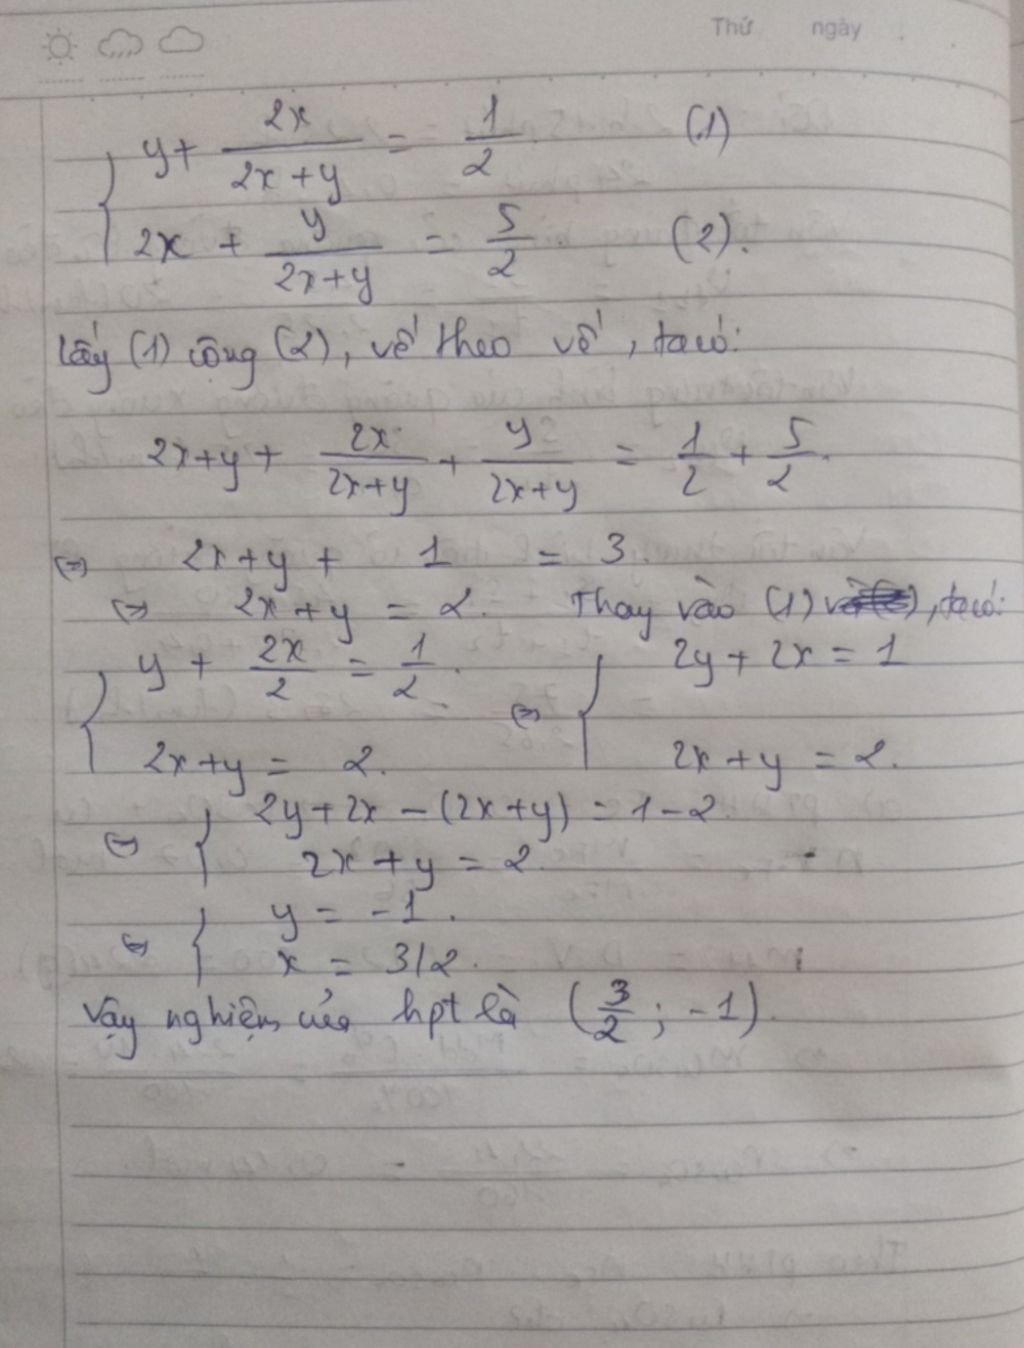 Thứ ngày
y + 2x/(2x+y) = 1/2 (1)
2x + y/(2x+y) = 5/2 (2).
Lấy (1) cộng (2), vế theo vế, ta có:
2x+y + 2x/(2x+y) + y/(2x+y) = 1/2 + 5/2.
⇔ 2x+y + 1 = 3.
⇔ 2x+y = 2. Thay vào (1), ta có:
{ y + 2x/2 = 1/2. ⇔ { 2y + 2x = 1
2x+y = 2. 2x + y = 2.
⇔ { 2y+2x - (2x+y) = 1-2
2x + y = 2.
⇔ { y = -1.
x = 3/2.
Vậy nghiệm của hpt là (3/2; -1).